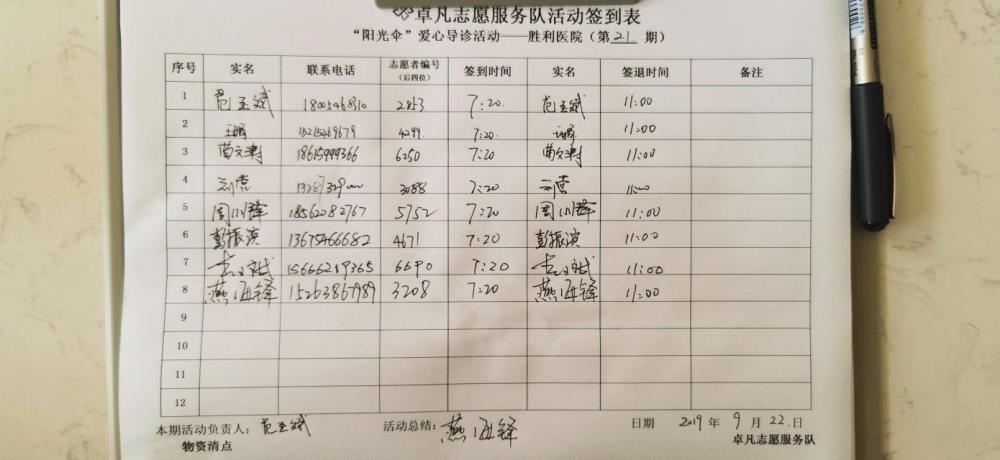 卓凡志愿服务队活动签到表
“阳光伞”爱心导诊活动——胜利医院（第21期）
序号 实名 联系电话 志愿者编号（后四位） 签到时间 实名 签退时间 备注
1 范玉斌 18005468310 2853 7:20 范玉斌 11:00
2 15215469679 4299 7:20 11:00
3 18615999366 6250 7:20 11:00
4 刘营 3088 7:20 刘营 11:00
5 周川铎 18562082767 5752 7:20 周川铎 11:00
6 彭振滨 13675466682 4671 7:20 彭振滨 11:00
7 15666219365 6690 7:20 11:00
8 燕海铎 15263867989 3208 7:20 燕海铎 11:00
9
10
11
12
本期活动负责人：范玉斌 活动总结：燕海铎 日期 2019年9月22日
物资清点 卓凡志愿服务队